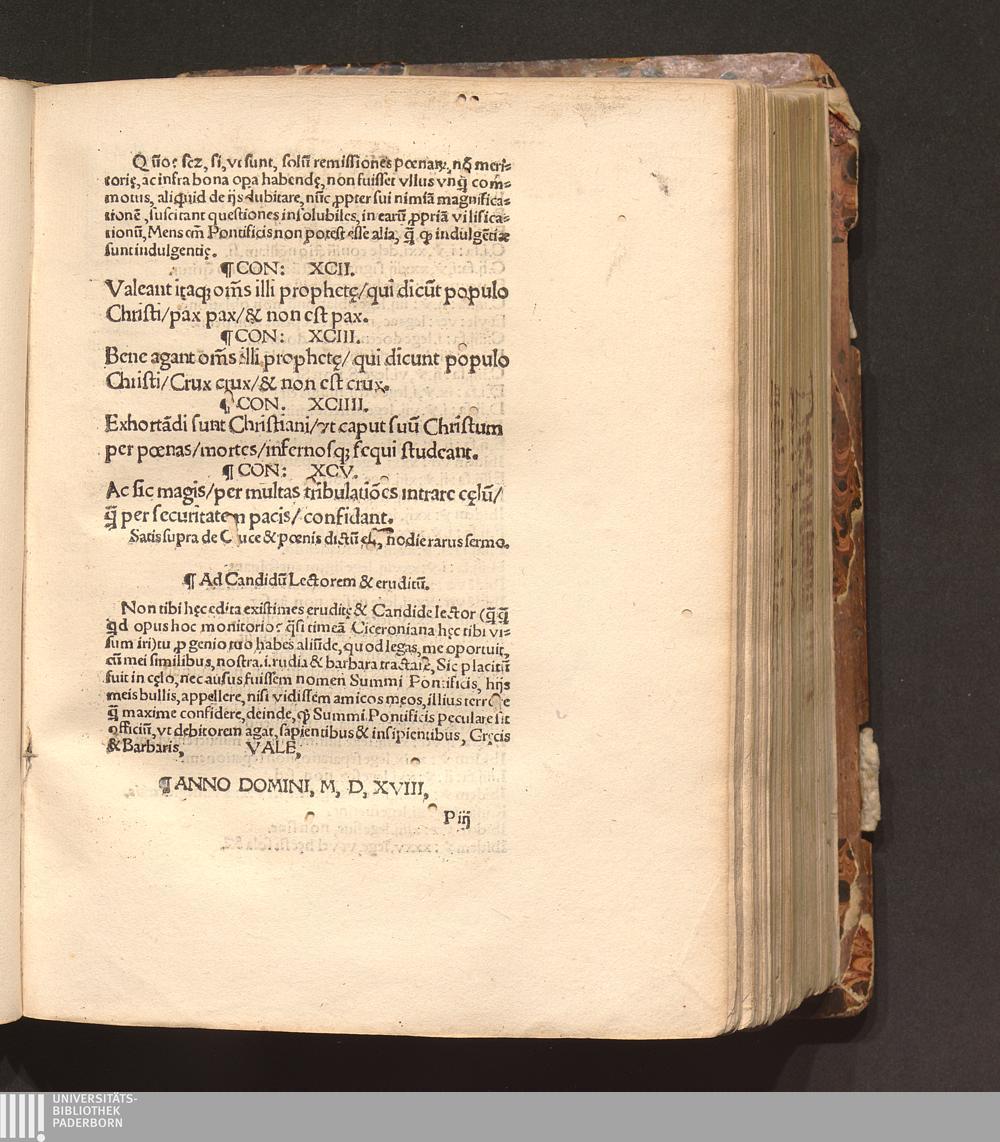 Q ũo? scz, si, vt sunt, solũ remissiones pœnaꝝ, nõ meri-
torię, ac infra bona oꝑa habendę, non fuisset vllus vnq̃ com-
motus, aliquid de ijs dubitare, nũc ꝓpter sui nimiã magnifica-
tionē, suscitant questiones insolubiles, in earũ ꝓpriã vilifica-
tionũ, Mens em̃ Pontificis non potest esse alia, q̃ ꝙ indulgẽtiæ
sunt indulgentię.
¶ CON: XCII.
Valeant itaqꝫ om̃s illi prophetę/qui dicũt populo
Christi/pax pax/& non est pax.
¶ CON: XCIII.
Bene agant om̃s illi prophetę/ qui dicunt populo
Christi/ Crux crux/& non est crux.
¶ CON. XCIIII.
Exhortãdi sunt Christiani/vt caput suũ Christum
per pœnas/mortes/infernosqꝫ sequi studeant.
¶ CON: XCV.
Ac sic magis/per multas tribulatiões intrare cęlũ/
q̃ per securitatem pacis/ confidant.
Satis supra de Cruce & pœnis dictũ est, hodie rarus sermo.
¶ Ad Candidũ Lectorem & eruditũ.
Non tibi hęc edita existimes erudite & Candide lector (q̃q̃
qd opus hoc monitorio? q̃si timeã Ciceroniana hęc tibi vi-
sum iri) tu ꝓ genio tuo habes aliũde, quod legas, me oportuit,
cũ mei similibus, nostra .i. rudia & barbara tractare, Sic placitũ
fuit in cęlo, nec ausus fuissem nomen Summi Pontificis, hijs
meis bullis, appellere, nisi vidissem amicos meos, illius terrore
q̃ maxime confidere, deinde, ꝙ Summi Pontificis peculare sit
officiũ, vt debitorem agat, sapientibus & insipientibus, Gręcis
& Barbaris, VALE,
¶ ANNO DOMINI, M, D, XVIII,
P iij
UNIVERSITÄTS-
BIBLIOTHEK
PADERBORN